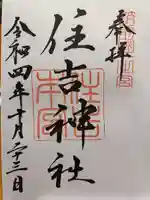 奉拝
住吉神社
令和四年十月二十三日